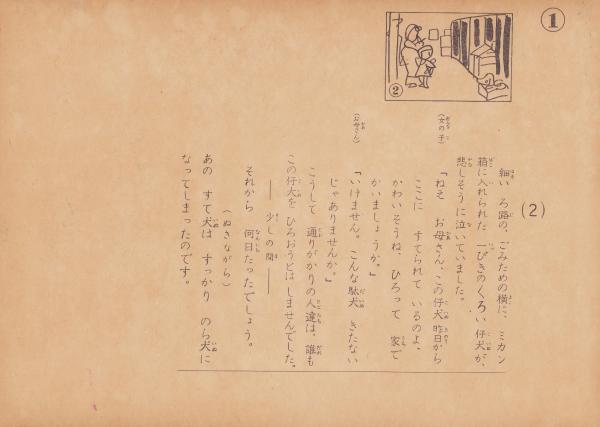 ①
②
(2)
細い ろ路の、ごみための横に、ミカン
箱に入れられた 一ぴきのくろい仔犬が、
悲しそうに泣いていました。
(女の子)「ねえ お母さん、この仔犬 昨日から
ここに すてられて いるのよ、
かわいそうね、ひろって 家で
かいましょうか。」
(お母さん)「いけません。こんな駄犬 きたない
じゃありませんか。」
こうして 通りがかりの人達は、誰も
この仔犬を ひろおうとはしませんでした。
―― 少しの間 ――
それから 何日たったでしょう。
(ぬきながら)
あの すて犬は すっかり のら犬に
なってしまったのです。